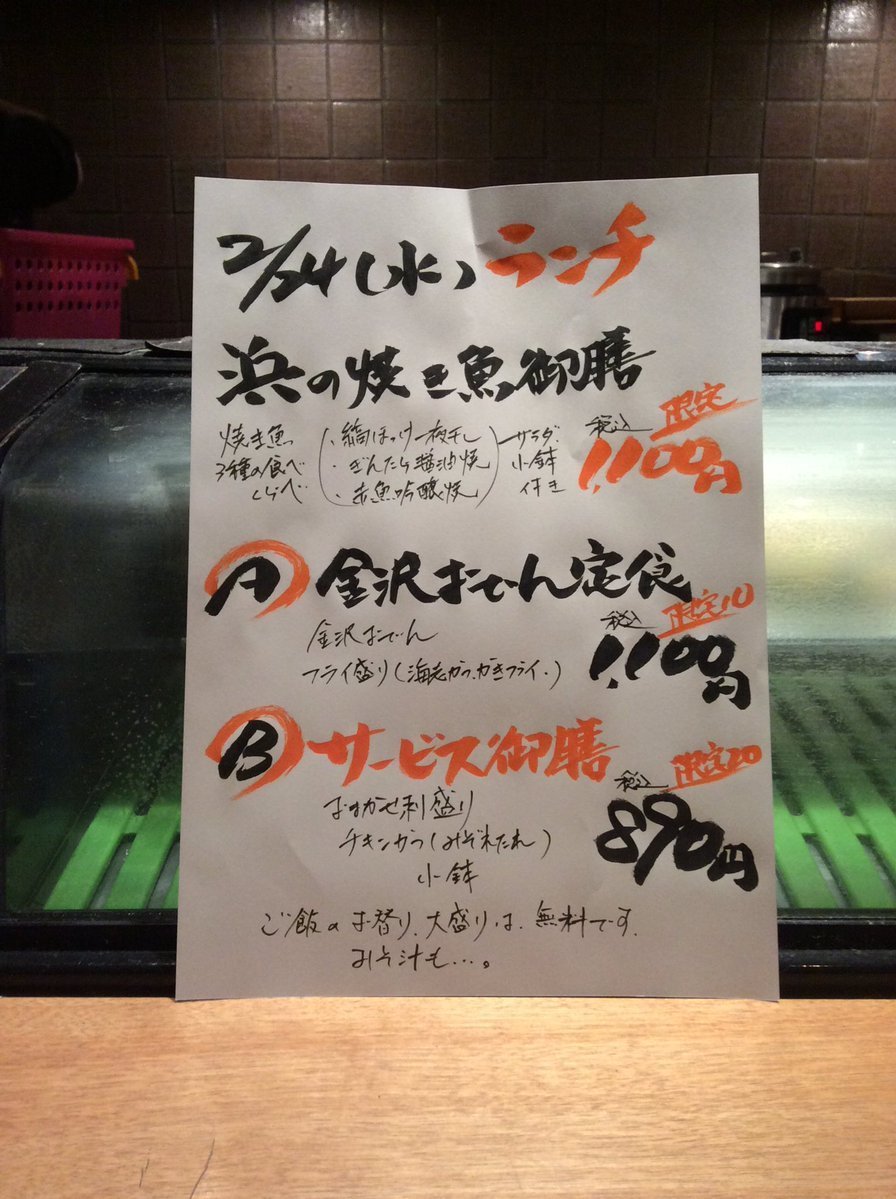 2/24(水)ランチ
浜の焼き魚御膳
限定
税込
1,100円
焼き魚
3種の食べ
くらべ
・縞ほっけ一夜干し
・ぎんだら醤油焼
・赤魚吟醸焼
サラダ
小鉢
付き
A 金沢おでん定食
限定10
税込
1,100円
金沢おでん
フライ盛り(海老かつ、かきフライ・)
B サービス御膳
限定20
税込
890円
おまかせ刺盛り
チキンかつ(みぞれたれ)
小鉢
ご飯のお替り、大盛りは、無料です、
みそ汁も…。